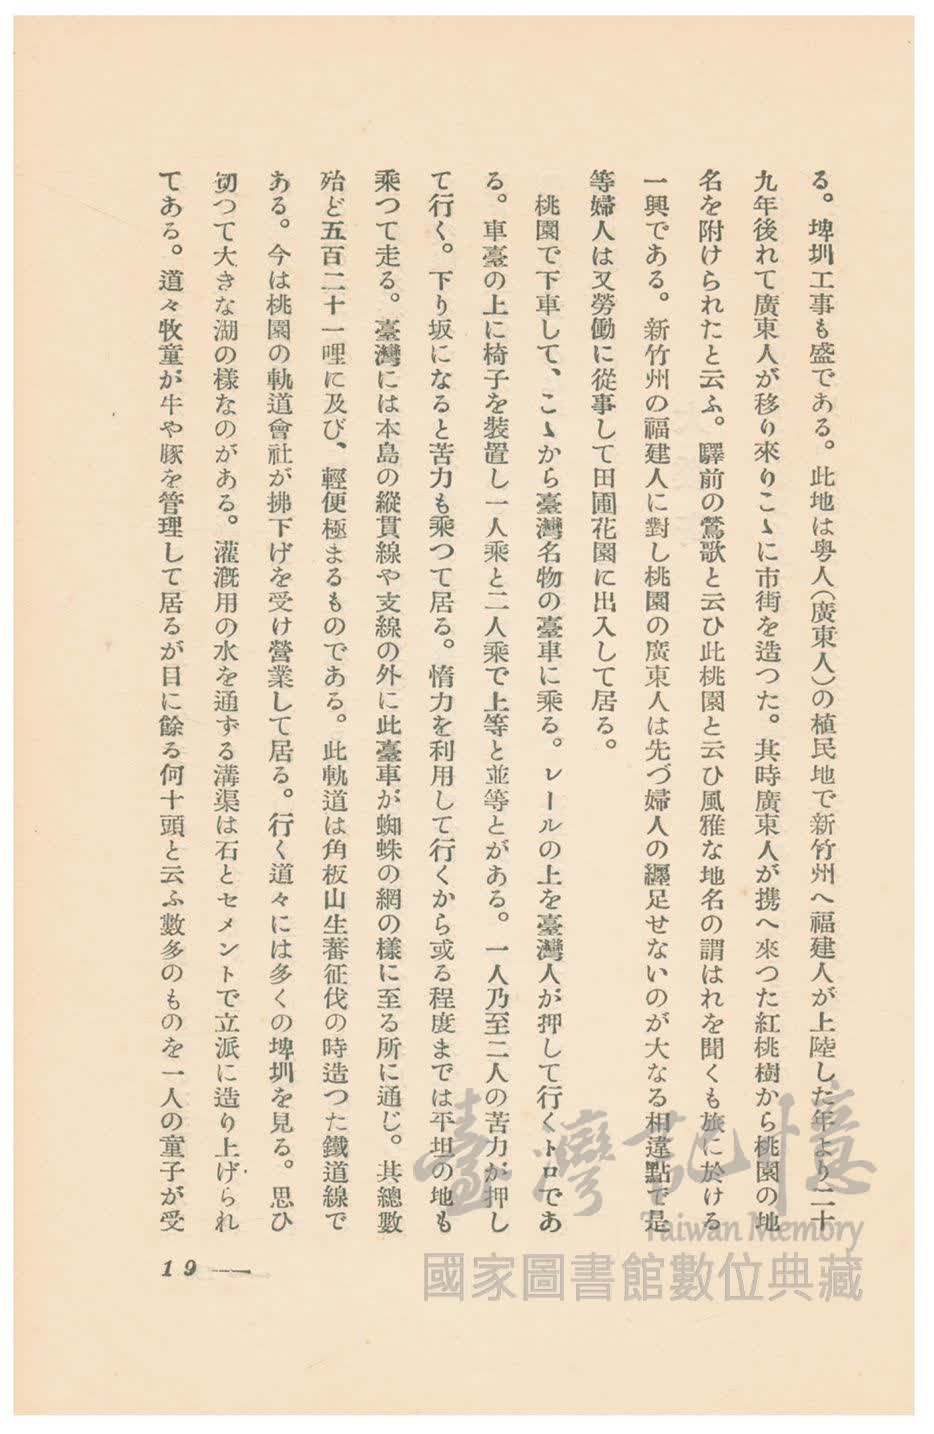 る。埤圳工事も盛である。此地は粤人(廣東人)の植民地で新竹州へ福建人が上陸した年より二十
九年後れて廣東人が移り來りこゝに市街を造つた。其時廣東人が携へ來つた紅桃樹から桃園の地
名を附けられたと云ふ。驛前の鶯歌と云ひ此桃園と云ひ風雅な地名の謂はれを聞くも旅に於ける
一興である。新竹州の福建人に對し桃園の廣東人は先づ婦人の纒足せないのが大なる相違點で是
等婦人は又勞働に從事して田圃花園に出入して居る。
桃園で下車して、こゝから臺灣名物の臺車に乘る。レールの上を臺灣人が押して行くトロであ
る。車臺の上に椅子を裝置し一人乘と二人乘で上等と並等とがある。一人乃至二人の苦力が押し
て行く。下り坂になると苦力も乘つて居る。惰力を利用して行くから或る程度までは平坦の地も
乘つて走る。臺灣には本島の縱貫線や支線の外に此臺車が蜘蛛の網の樣に至る所に通じ。其總數
殆ど五百二十一哩に及び、輕便極まるものである。此軌道は角板山生蕃征伐の時造つた鐵道線で
ある。今は桃園の軌道會社が拂下げを受け營業して居る。行く道々には多くの埤圳を見る。思ひ
切つて大きな湖の樣なのがある。灌漑用の水を通ずる溝渠は石とセメントで立派に造り上げられ
てある。道々牧童が牛や豚を管理して居るが目に餘る何十頭と云ふ數多のものを一人の童子が受
19 —
臺灣記憶
Taiwan Memory
國家圖書館數位典藏